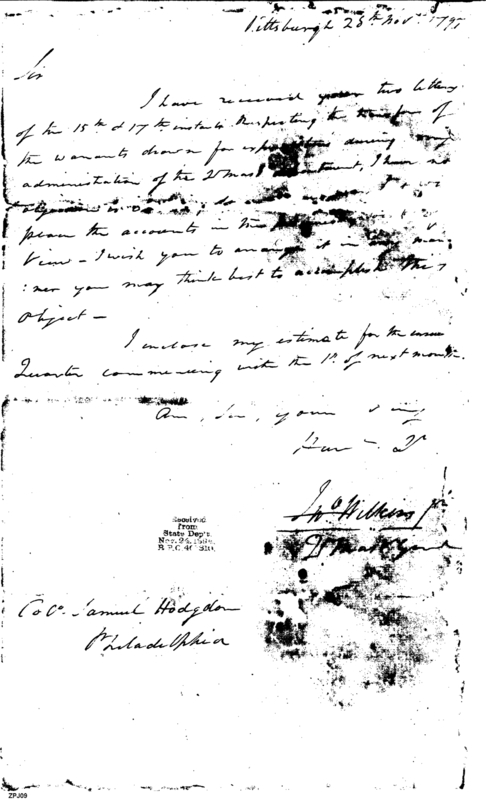 Pittsburgh 28th Novr. 179
Sir
I have received your two letters
of the 15th & 17th instants respecting the transfer of
the warrants drawn for expenditures during my
administration of the Qr Mast department, I have no
place the accounts in the
View – I wish you to arrange it in any man
:ner you may think best to accomplish this
object –
I inclose my estimate for the
Quarter commencing with the 1st. of next month.
Am, Sir, your
Jno Wilkins jr
Qr Mastr Genl
Received
from
State Dep't.
Nov. 24, 19
Colo. Samuel Hodgdon
Philadelphia
ZPJ09